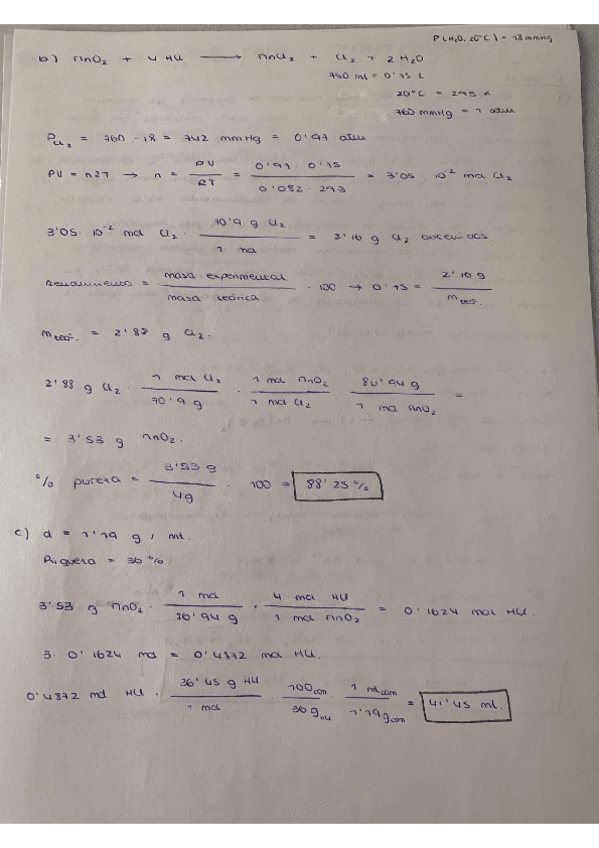 P(H₂O, 20°C) = 18 mmHg
b) MnO₂ + 4 HCl ⟶ MnCl₂ + Cl₂ + 2 H₂O
750 ml = 0'75 L
20°C = 293 K
760 mmHg = 1 atm
P_Cl₂ = 760 - 18 = 742 mmHg = 0'97 atm
PV = nRT → n = PV / RT = 0'97 · 0'75 / 0'082 · 293 = 3'05 · 10⁻² mol Cl₂
3'05 · 10⁻² mol Cl₂ · 70'9 g Cl₂ / 1 mol = 2'16 g Cl₂ obtenidos.
Rendimiento = masa experimental / masa teórica · 100 → 0'75 = 2'16 g / m teo.
m teo. = 2'88 g Cl₂.
2'88 g Cl₂ · 1 mol Cl₂ / 70'9 g · 1 mol MnO₂ / 1 mol Cl₂ · 86'94 g / 1 mol MnO₂ =
= 3'53 g MnO₂.
% pureza = 3'53 g / 4g · 100 = 88'25 %
c) d = 1'19 g / ml.
Riqueza = 36 %
3'53 g MnO₂ · 1 mol / 86'94 g · 4 mol HCl / 1 mol MnO₂ = 0'1624 mol HCl.
3 · 0'1624 mol = 0'4872 mol HCl.
0'4872 mol HCl · 36'45 g HCl / 1 mol · 100 com / 36 g HCl · 1 ml com / 1'19 g com = 41'45 ml.